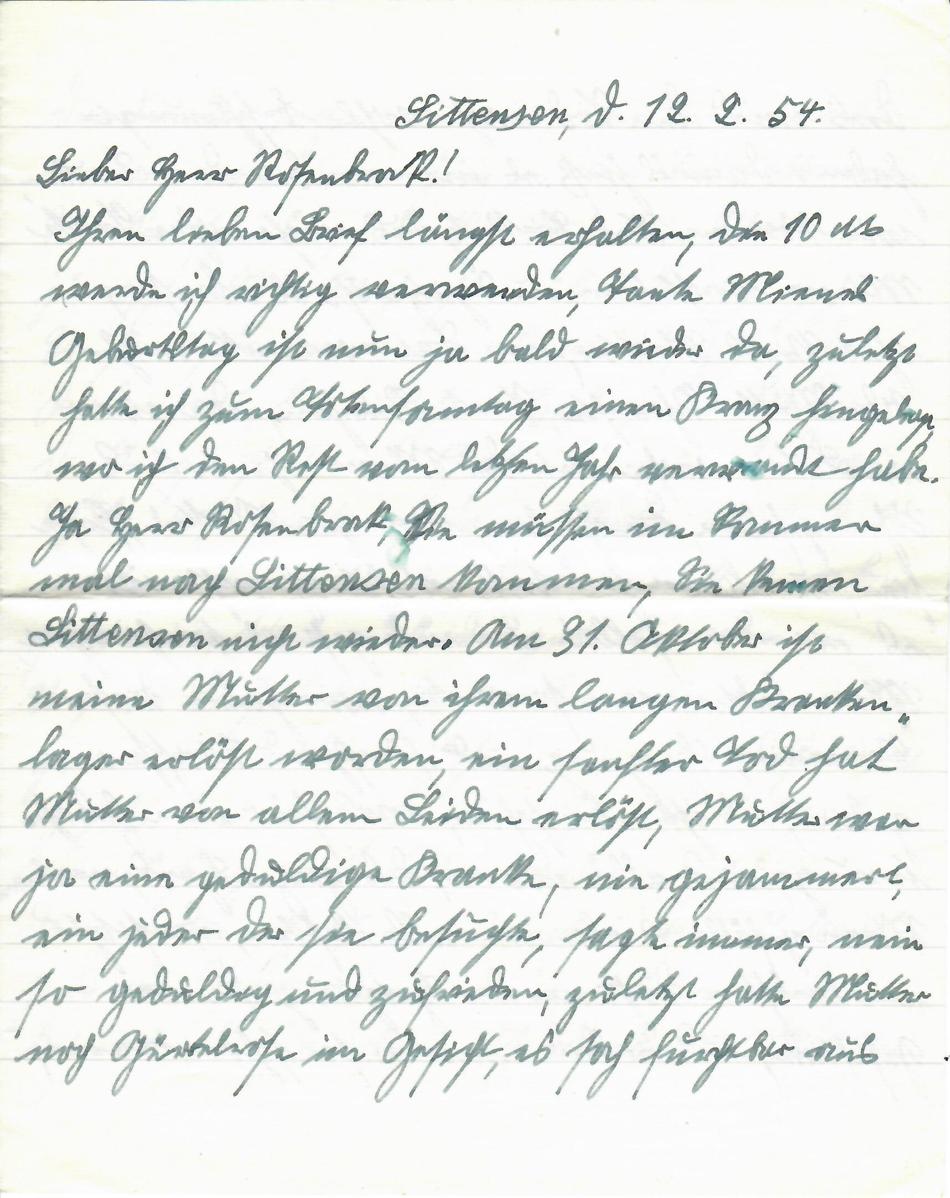 Sittensen, d. 12. 2. 54.
Lieber Herr Rosenbrok!
Ihren lieben Brief längst erhalten, die 10 M
werde ich richtig verwenden, Tante Mienes
Geburtstag ist nun ja bald wieder da, zuletzt
hatte ich zum Totensonntag einen Kranz hingelegt,
wo ich den Rest vom letzten Jahr verwandt habe.
Ja Herr Rosenbrok, Sie müssen im Sommer
mal nach Sittensen kommen, Sie kennen
Sittensen nicht wieder. Am 31. Oktober ist
meine Mutter von ihrem langen Kranken„
lager erlöst worden, ein sanfter Tod hat
Mutter von allem Leiden erlöst, Mutter war
ja eine geduldige Kranke, nie gejammert,
ein jeder der sie besuchte, sagte immer, nein
so geduldig und zufrieden, zuletzt hatte Mutter
noch Gürtelrose im Gesicht, es sah furchtbar aus